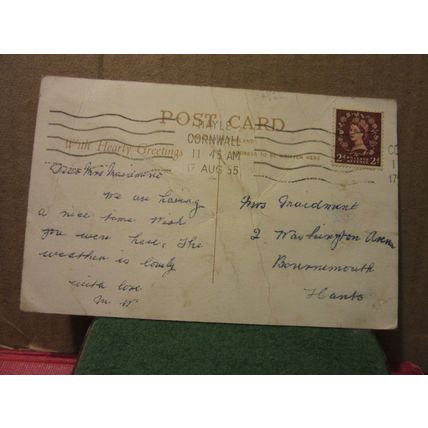 POST CARD
With Hearty Greetings
HAYLE
CORNWALL
11 45 AM
17 AUG 55
ADDRESS TO BE WRITTEN HERE
2D 2D
Dear Mrs Maidment
We are having
a nice time Wish
you were here, The
weather is lovely
with love
M. W
Mrs Maidment
2. Washington Avenue
Bournemouth
Hants